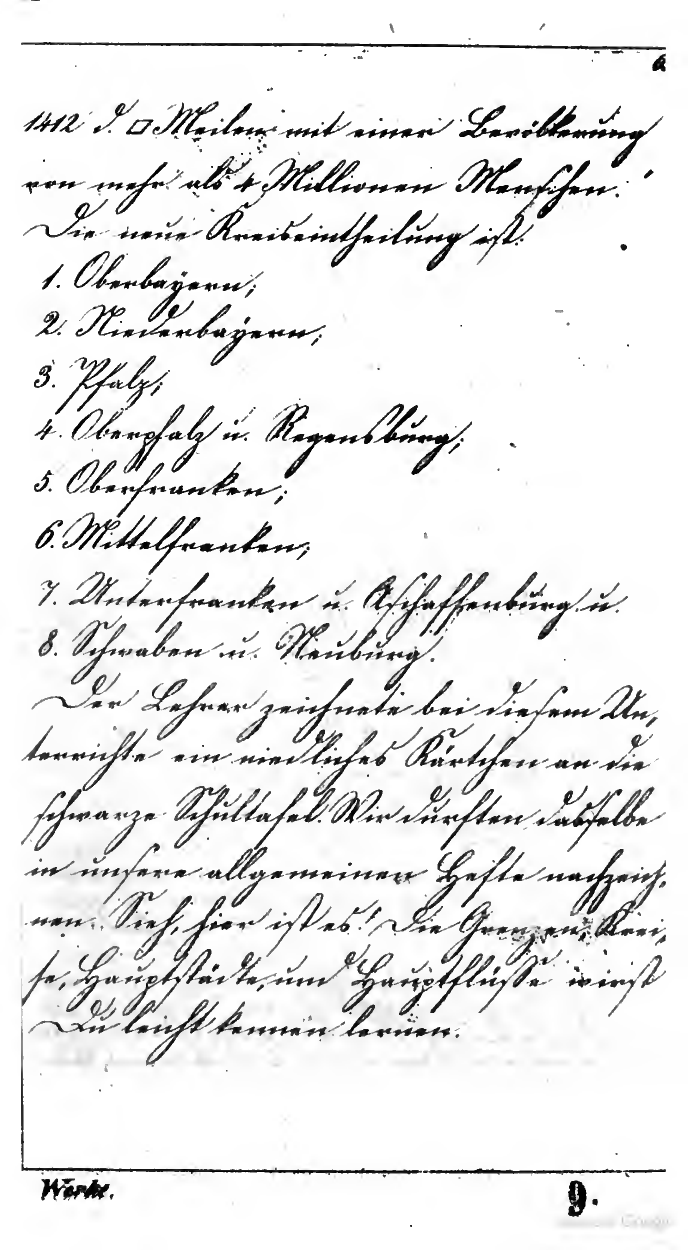 a
1412 d. □ Meilen mit einer Bevölkerung
von mehr als 4 Millionen Menschen.
Die neue Kreiseintheilung ist:
1. Oberbayern;
2. Niederbayern;
3. Pfalz;
4. Oberpfalz u. Regensburg;
5. Oberfranken;
6. Mittelfranken;
7. Unterfranken u. Aschaffenburg u.
8. Schwaben u. Neuburg.
Der Lehrer zeichnete bei diesem Un-
terrichte ein niedliches Kärtchen an die
schwarze Schultafel. Wir durften dasselbe
in unsere allgemeinen Hefte nachzeich-
nen. Sieh, hier ist es! Die Grenzen, Krei-
se, Hauptstädte, und Hauptflüsse wirst
Du leicht kennen lernen.
Werke.
9.
Google